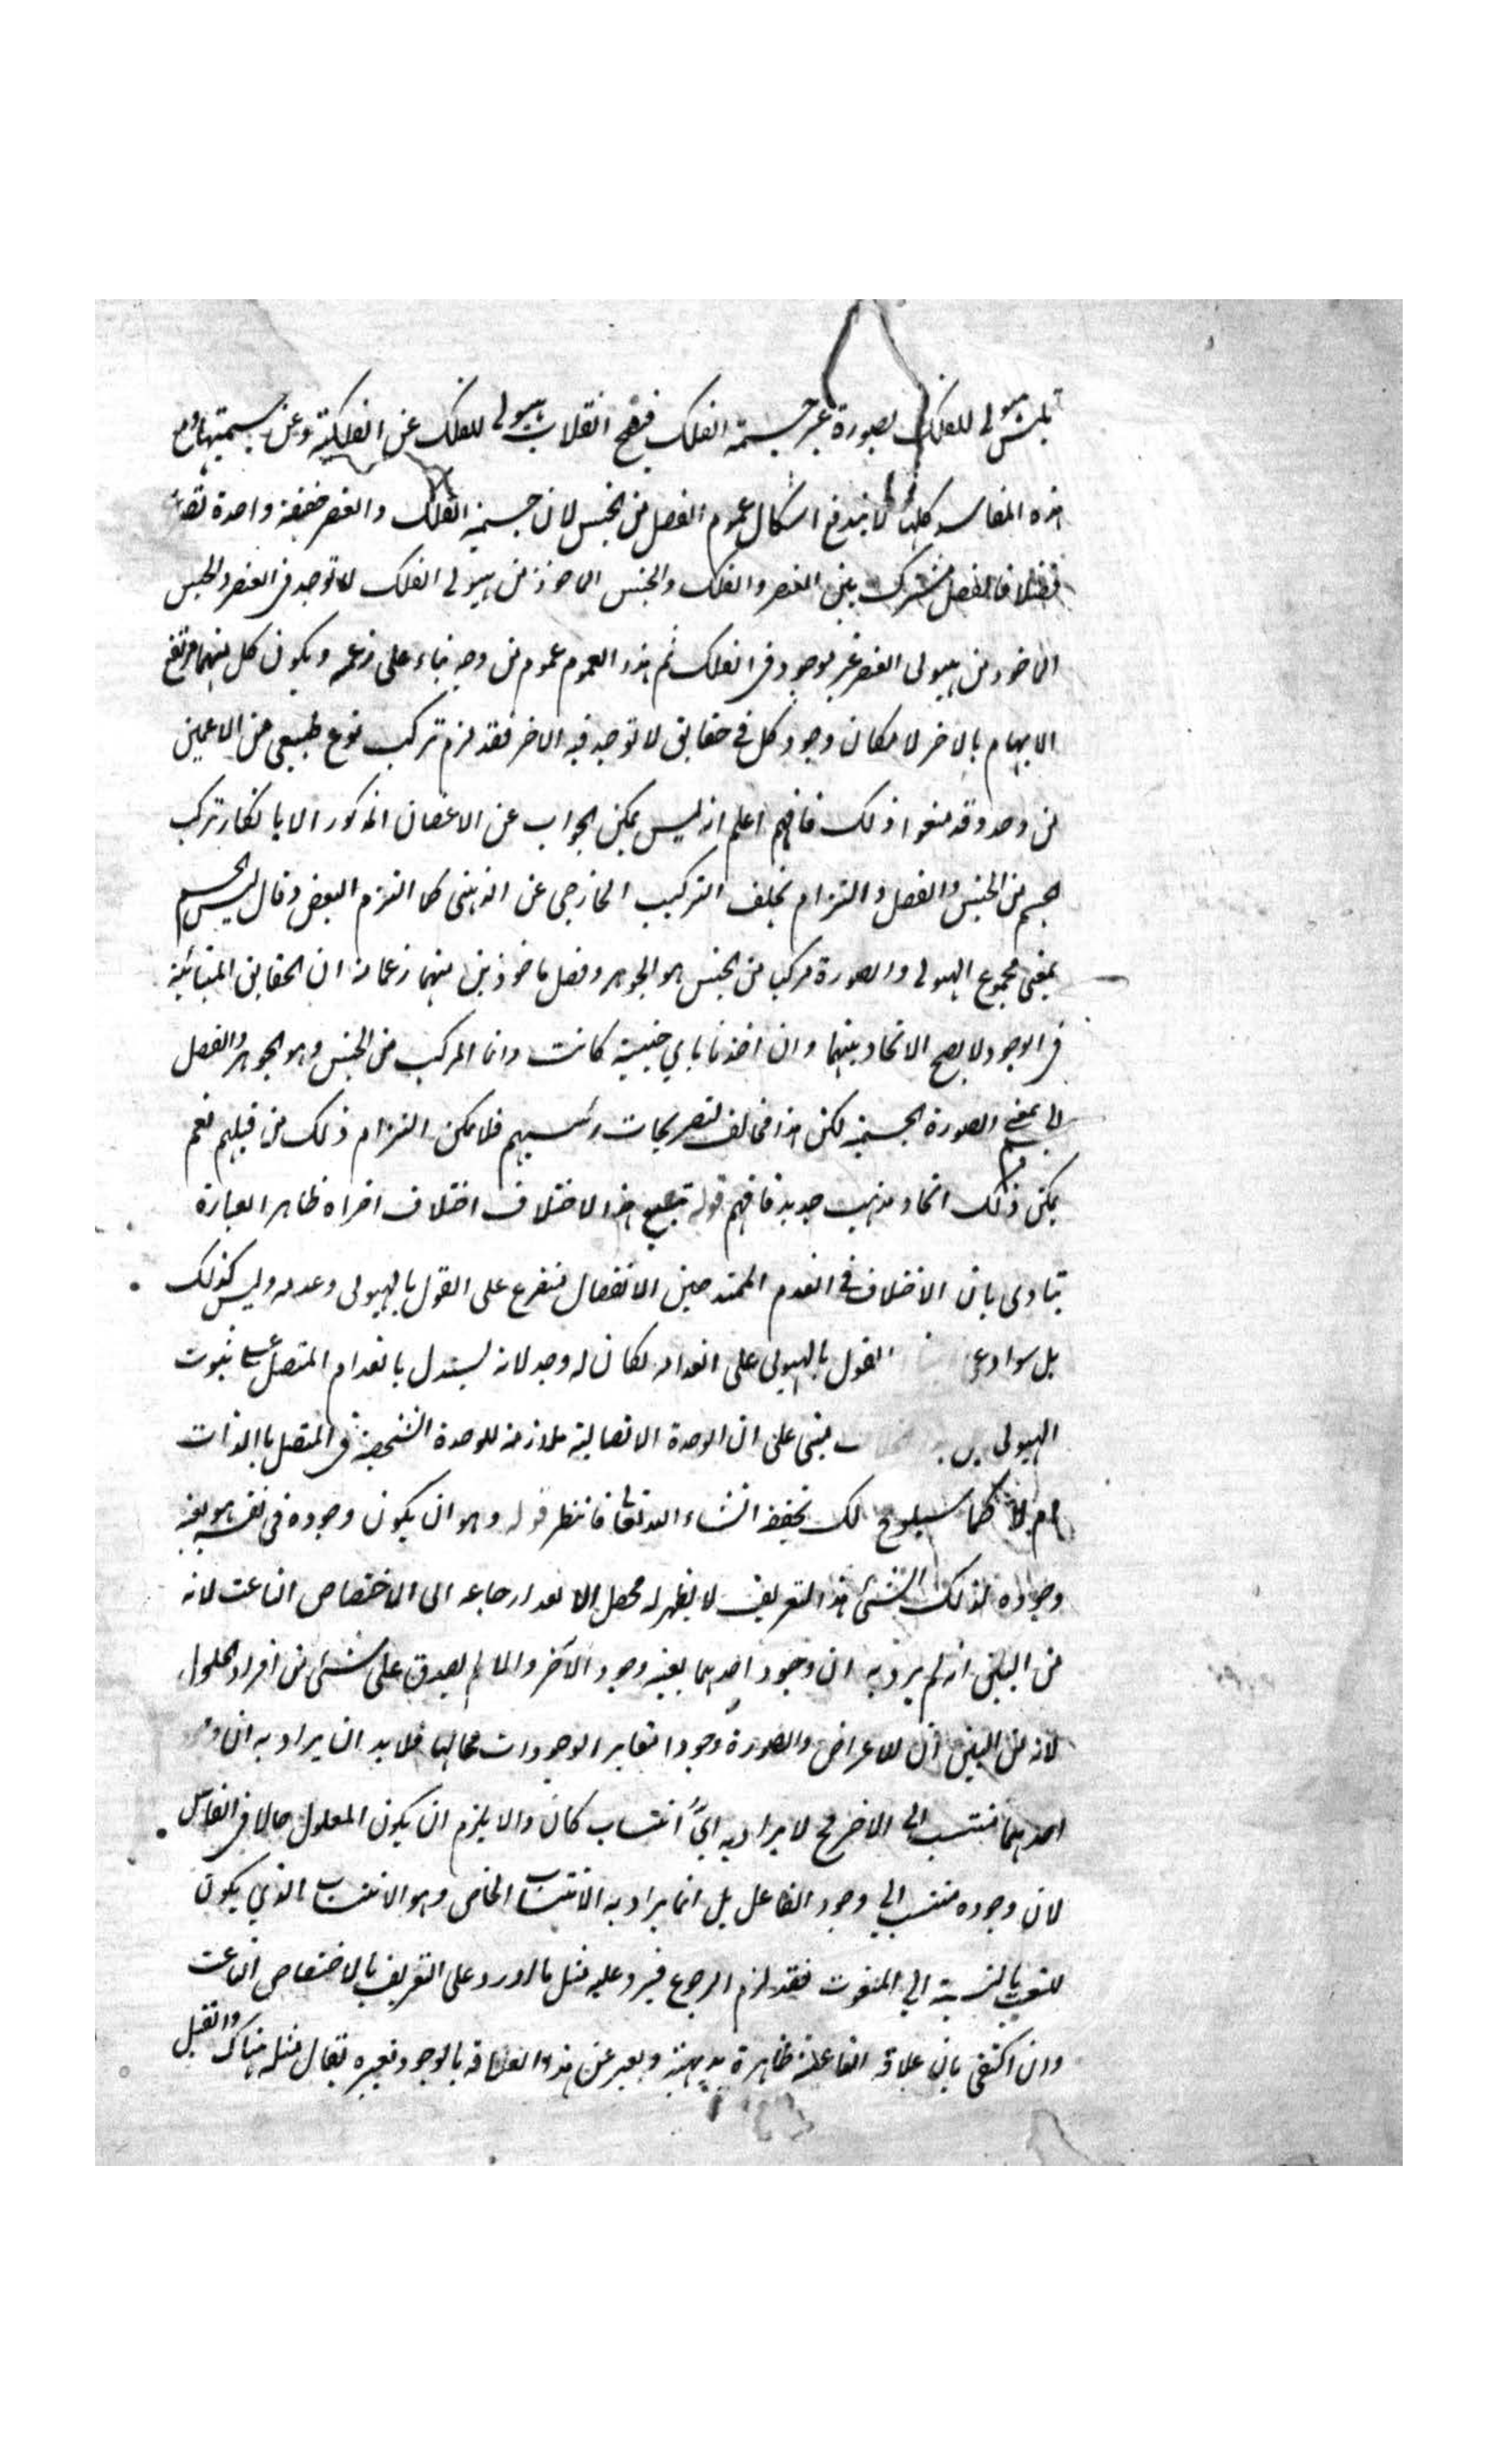 هيولى للفلك بصورة غير جسمية الفلك فيصح انقلاب هيولى للفلك عن الفلكية وعن جسميتها ومع
هذه المفاسد كلها لا يندفع اشكال عموم الفصل من الجنس لان جسمية الفلك والعنصر حقيقة واحدة
فالفصل مشترك بين العنصر والفلك والجنس الماخوذ من هيولى الفلك لا توجد في العنصر والجنس
الماخوذ من هيولى العنصر غير موجود في الفلك ثم هذا العموم عموم من وجه بناء على زعمه ويكون كل منهما مرتفع
الابهام بالاخر لامكان وجود كل في حقايق لا توجد فيه الاخر فقد لزم تركيب نوع طبيعي من الاعمين
من وجه وقد منعوا ذلك فافهم اعلم انه ليس يمكن الجواب عن الاعضال المذكور الا بانكار تركب
الجسم من الجنس والفصل والتزام تخلف التركيب الخارجي عن الذهني كما التزم البعض وقال ليس الجسم
بمعنى مجموع الهيولى والصورة مركب من الجنس هو الجوهر وفصل ماخوذين منهما زعما منه ان الحقايق المتبائنة
في الوجود لا يصح الاتحاد بينهما وان اخذنا باي حيثية كانت وانما المركب من الجنس وهو الجوهر والفصل
الجسم بمعنى الصورة الجسمية لكن هذا مخالف لتصريحات رئيسهم فلا يمكن التزام ذلك من قبلهم نعم
يمكن ذلك اتخاذ مذهب جديد فافهم قوله هذا الاختلاف اختلاف اخراه ظاهر العبارة
ينادى بان الاختلاف في انعدام الممتد حين الانفصال متفرع على القول بالهيولى وعدمه وليس كذلك
بل سوا دعى القول بالهيولى على انعدامه لكان له وجه لانه يستدل بانعدام المتصل على ثبوت
الهيولى مبنى على ان الوحدة الاتصالية ملازمة للوحدة الشخصية في المتصل بالذات
ام لا كما سيلوح لك تحقيقه انشاء الله تعالى فانتظر قوله وهو ان يكون وجوده في نفسه هو بعينه
وجوده لذلك الشئ هذا التعريف لا يظهر له محصل الا بعد ارجاعه الى الاختصاص الناعت لانه
من البين انه لم يرد به ان وجود احدهما بعينه وجود الآخر والا لم يصدق على شئ من افراد الحلول
لانه من البين ان للاعراض والصورة وجودا تغاير الوجودات محالها فلا بد ان يراد به ان
احدهما منتسب الى الاخر وح لا يراد به اىّ انتساب كان والا يلزم ان يكون المعلول حالا في الفاعل
لان وجوده منتسب الي وجود الفاعل بل انما يراد به الانتساب الخاص وهو الانتساب الذي يكون
للنعت بالنسبة الي المنعوت فقد لزم الرجوع فيرد عليه مثل ما اورد على التعريف بالاختصاص الناعت
وان اكتفى بان علاقة الفاعلية ظاهرة بديهية ويعبر عن هذا العلاقة بالوجود وغيره يقال مثله هناك وان قيل